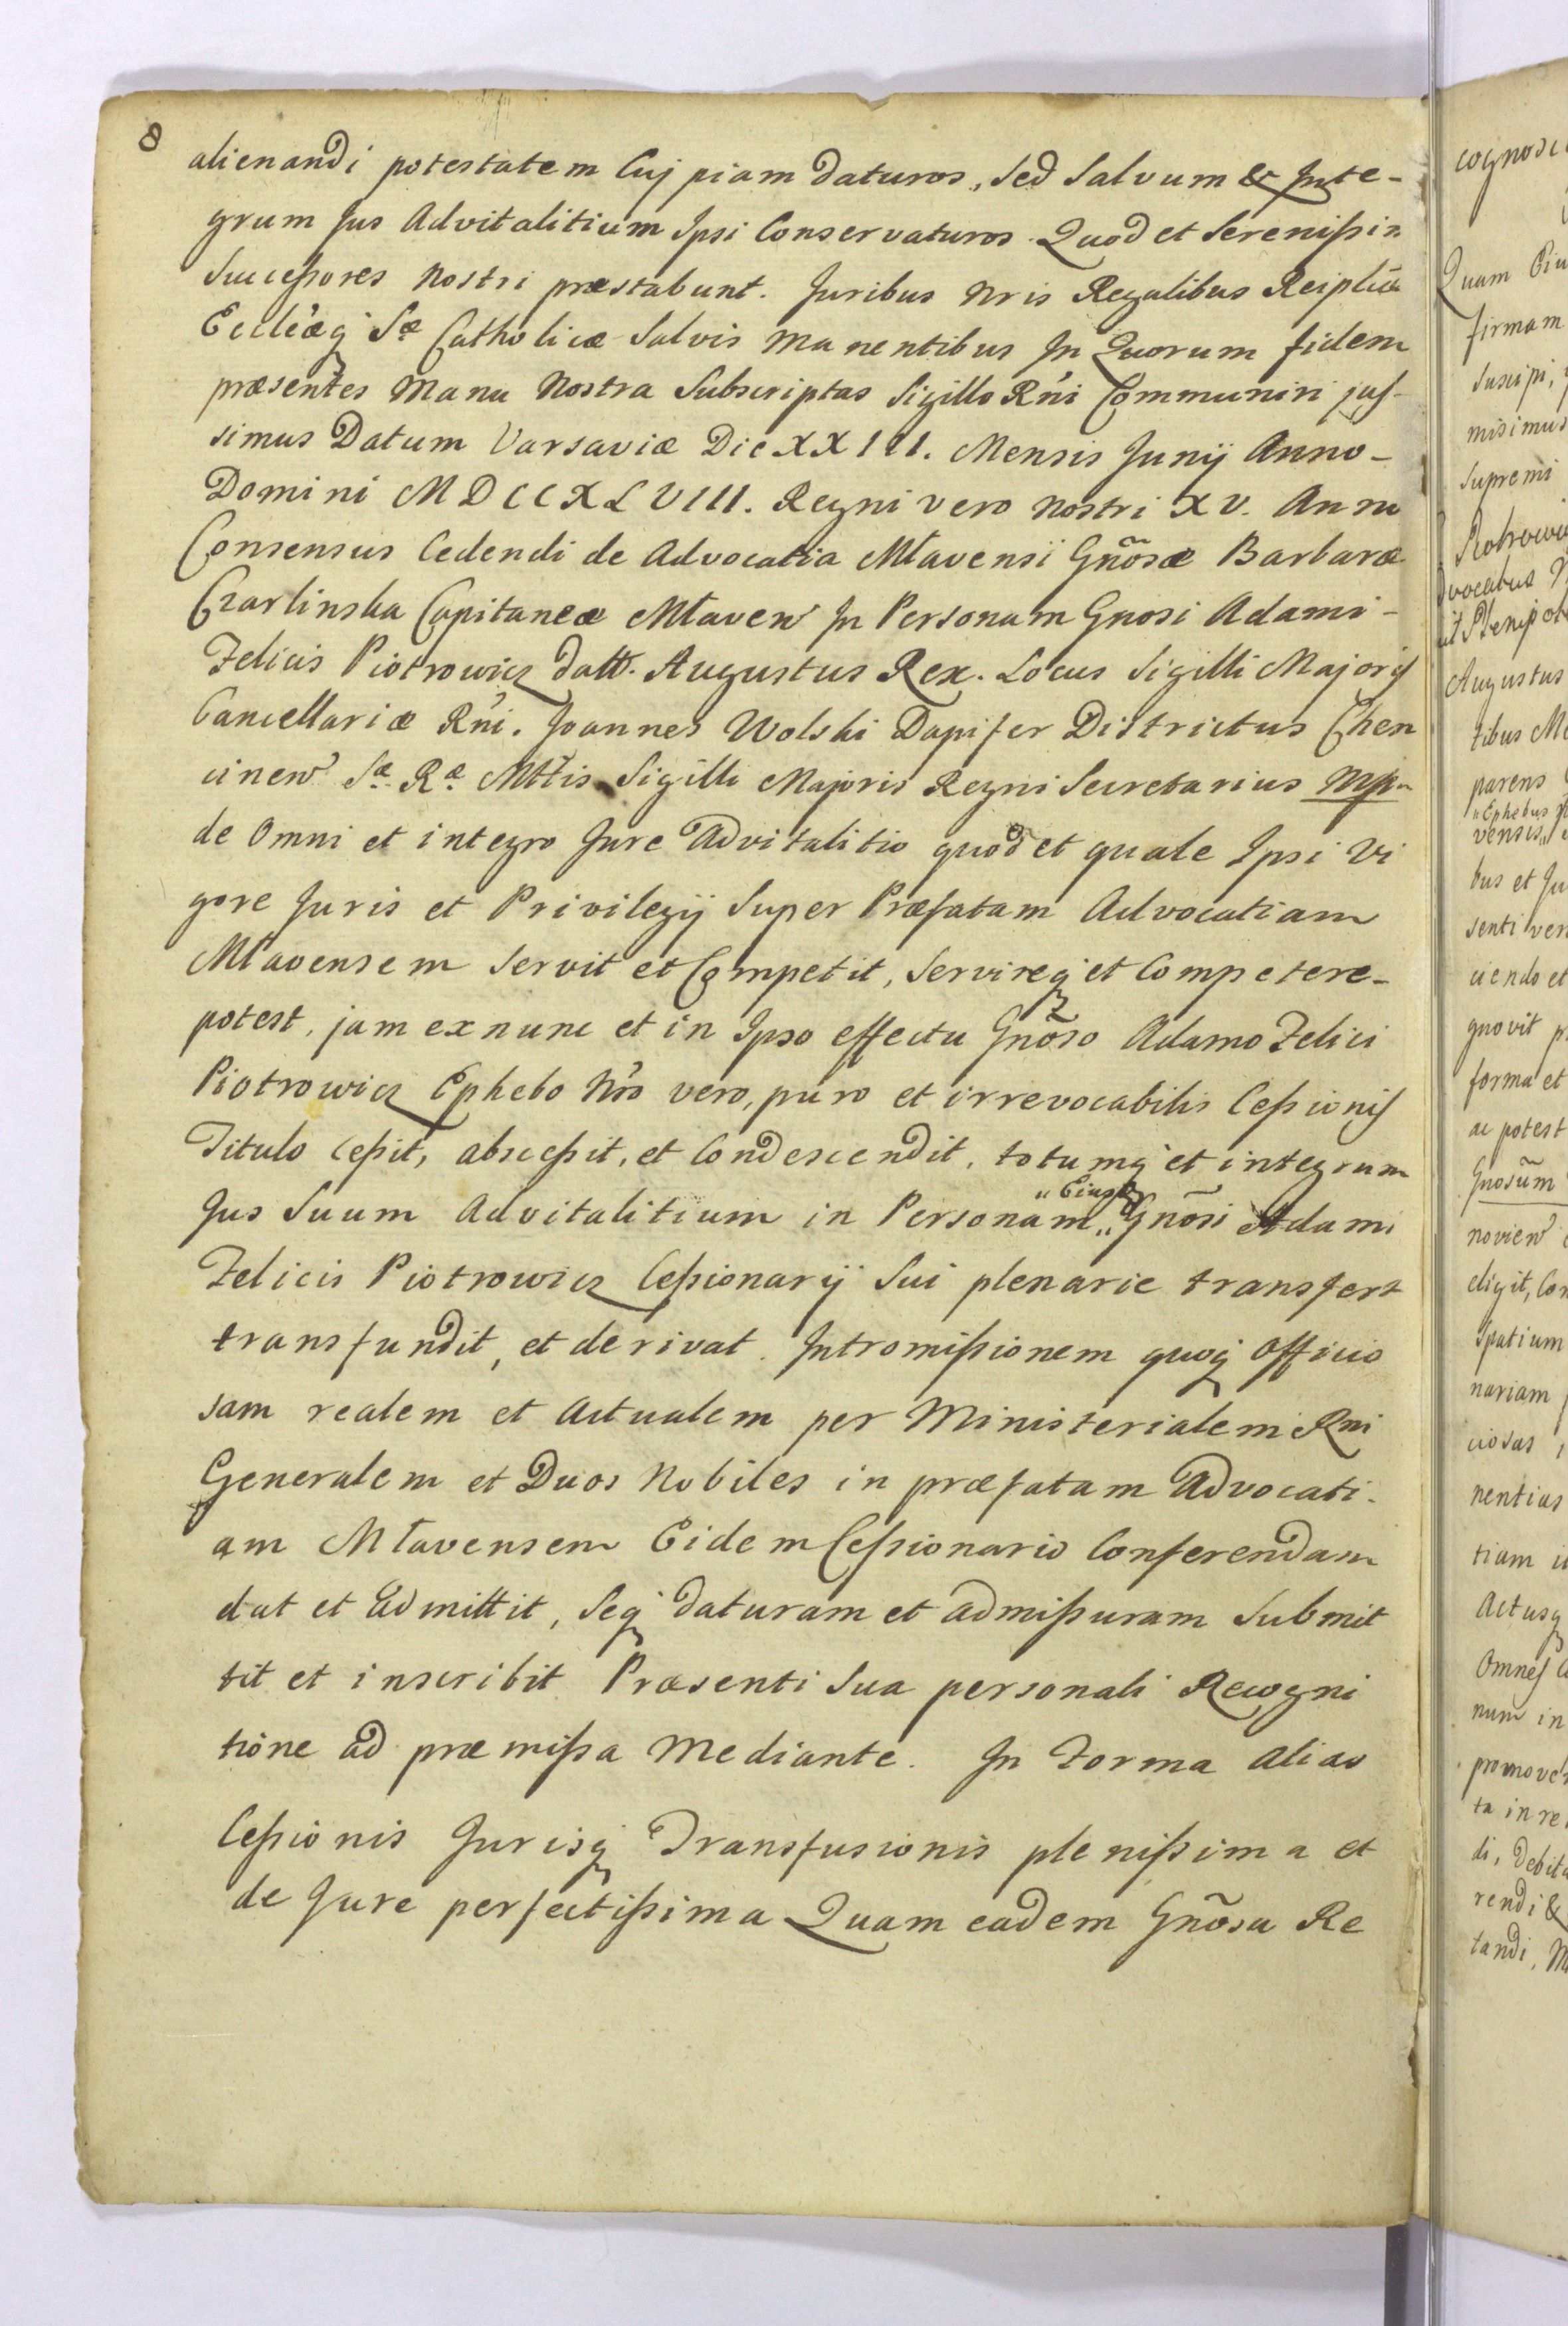 8
alienandi potestatem Cujpiam daturos, sed Salvum & Inte-
grum Jus Advitalitium Ipsi Conservaturos. Quod et Serenißin
Succeßores Nostri præstabunt. Juribus Nris Regalibus Reiplicæ
Eccleæq Sæ Catholicæ Salvis manentibus In Quorum fidem
præsentes Manu Nostra Subscriptas Sigillo Rni Communiri jus-
simus Datum Varsaviæ Die XXIII. Mensis Junij Anno-
Domini MDCCXLVIII. Regni vero Nostri XV. Anno
Consensus Cedendi de Advocatia Mtavensi Gnõsæ Barbaræ
Czarlinska Capitaneæ Mtaven In Personam Gnosi Adami-
Felicis Piotrowicz datt. Augustus Rex. Locus Sigilli Majoris
Cancellariæ Rni. Joannes Wolski Dapifer Districtus Chen
cinen Sæ Ræ Mttis Sigilli Majoris Regni Secretarius mp
de Omni et integro Jure Advitalitio quod et quale Ipsi Vi
gore Juris et Privilegij Super Præfatam Advocatiam
Mtavensem Servit et Competit, Servireq et Competere-
potest, jam ex nunc et in Ipso effectu Gnõso Adamo Felici
Piotrowicz Ephebo Nro vero, puro et irrevocabilis Ceßionis
Titulo Ceßit, absceßit, et Condescendit, totumq et integrum
Jus Suum Advitalitium in Personam „ Gnõsi Adami
Felicis Piotrowicz Ceßionarij Sui plenarie transfert
transfundit, et derivat. Intromißionem quoq Officio
sam realem et Actualem per Ministerialem Rni
Generalem et Duos Nobiles in præfatam Advocati-
am Mtavensem Eidem Ceßionario Conferendam
dat et admittit, Seq daturam et admißuram Submit
tit et inscribit Præsenti Sua personali Recogni
tione ad præmißa Mediante. In Forma alias
Ceßionis Jurisq Transfusionis plenißima et
de Jure perfectißima Quam eadem Gnõsa Re
Quam
firmam
suscipi,
misimus
Supremi
Augustus
tibus
parens
bus et Ju
senti
ciendo et
gnovit
forma et
ac potest
Gnosum
novien
eligit,
Spatium
nariam
ciosas
nentias
tiam
Actusq
Omnes
num in
ta in re
di, debita
rendi &
tandi,